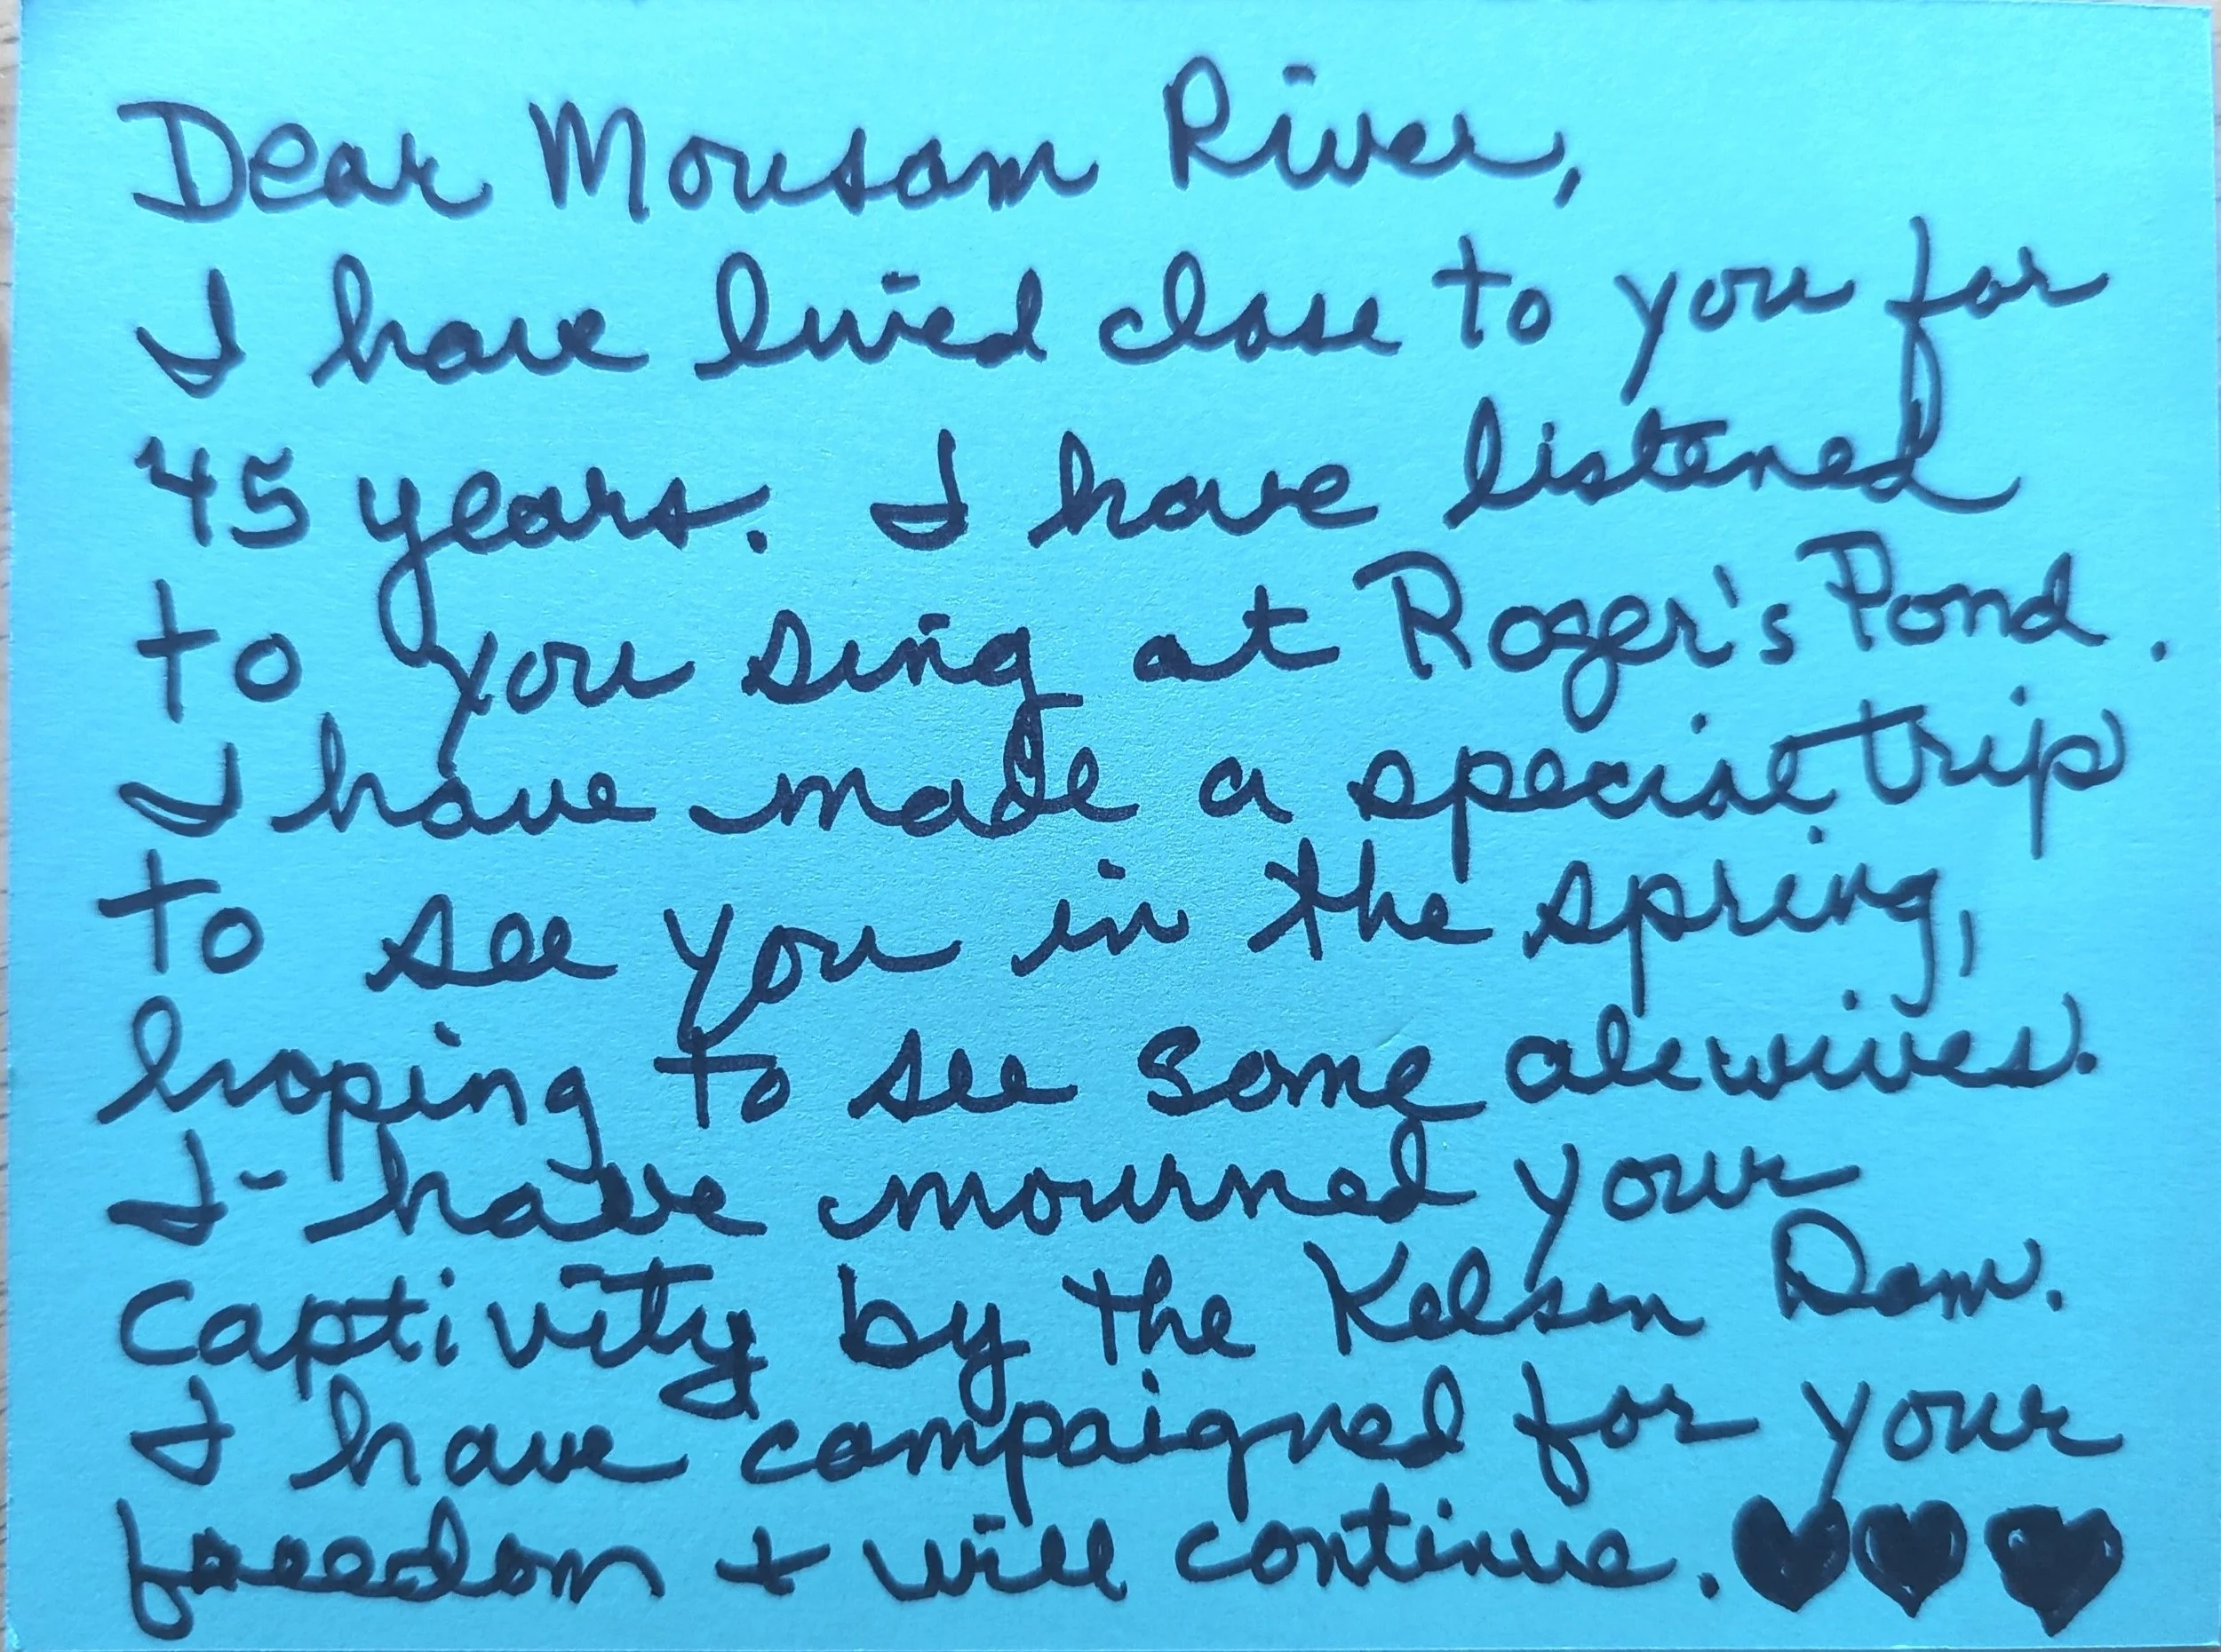 Dear Mousam River,
I have lived close to you for
45 years. I have listened
to you sing at Roger's Pond.
I have made a special trip
to see you in the spring,
hoping to see some alewives.
I have mourned your
captivity by the Kelsen Dam.
I have campaigned for your
freedom + will continue. ♥♥♥